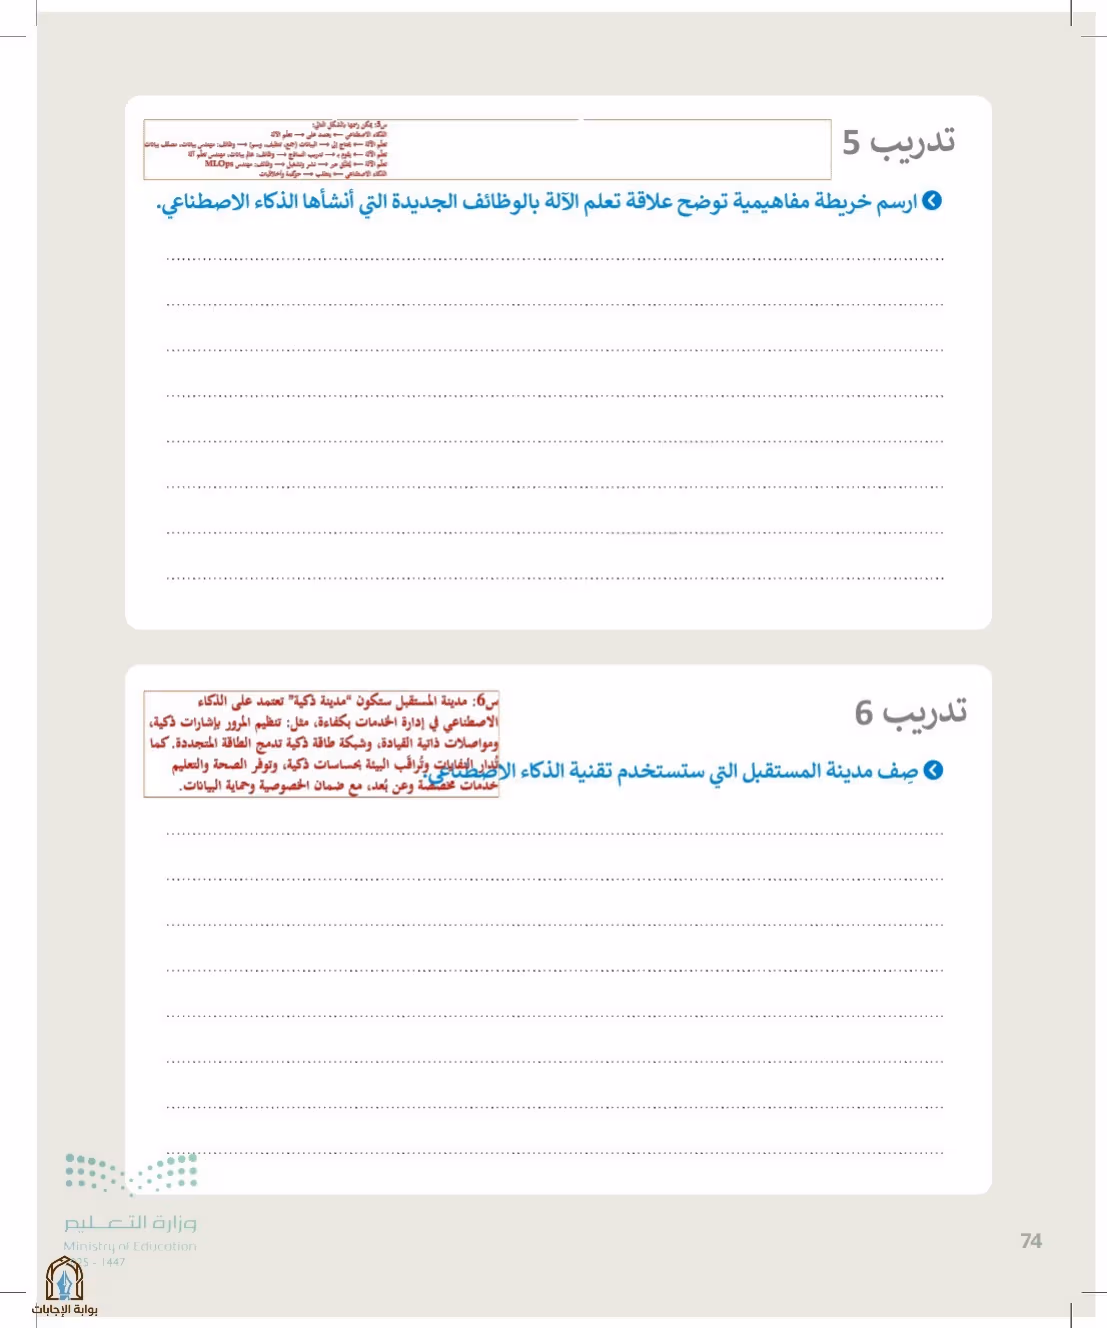 تدريب 5
س5: يمكن رسمها بالشكل التالي:
الذكاء الاصطناعي ← يعتمد على ← تعلم الآلة
تعلّم الآلة ← يحتاج إلى ← البيانات (جمع، تنظيف، وسم) ← وظائف: مهندس بيانات، مصنّف بيانات
تعلّم الآلة ← يقوم بـ ← تدريب النماذج ← وظائف: عالم بيانات، مهندس تعلّم آلة
تعلّم الآلة ← يُطبَّق عبر ← نشر وتشغيل ← وظائف: مهندس MLOps
الذكاء الاصطناعي ← يتطلب ← حوكمة وأخلاقيات
ارسم خريطة مفاهيمية توضح علاقة تعلم الآلة بالوظائف الجديدة التي أنشأها الذكاء الاصطناعي.
تدريب 6
س6: مدينة المستقبل ستكون "مدينة ذكية" تعتمد على الذكاء
الاصطناعي في إدارة الخدمات بكفاءة، مثل: تنظيم المرور بإشارات ذكية،
ومواصلات ذاتية القيادة، وشبكة طاقة ذكية تدمج الطاقة المتجددة. كما
تُدار النفايات وتُراقَب البيئة بحساسات ذكية، وتوفر الصحة والتعليم
خدمات مخصصة وعن بُعد، مع ضمان الخصوصية وحماية البيانات.
صِف مدينة المستقبل التي ستستخدم تقنية الذكاء الاصطناعي.
وزارة التعليم
Ministry of Education
1447
74
بوابة الإجابات